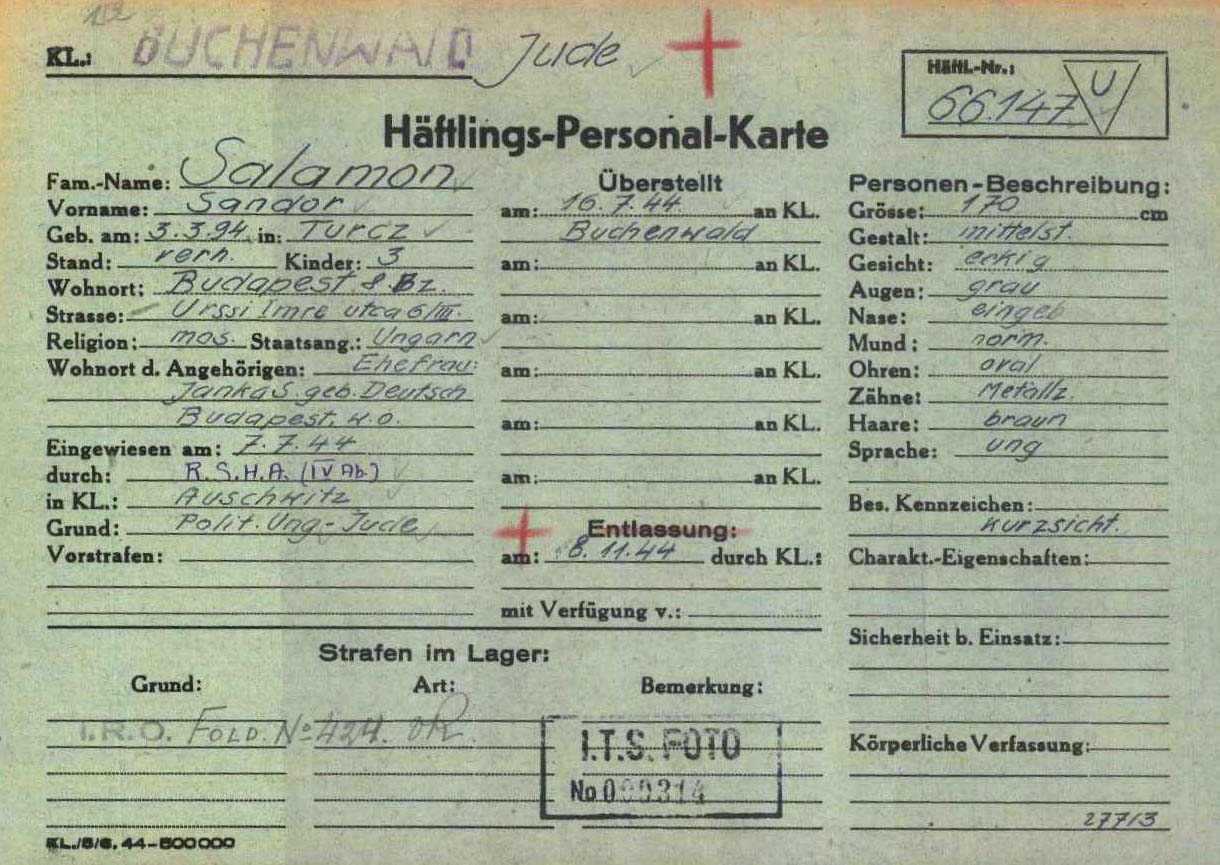 KL.: BUCHENWALD Jude
Häftl.-Nr.:
66.147 U
Häftlings-Personal-Karte
Fam.-Name: Salamon
Vorname: Sandor
Geb. am: 3.3.94. in: Turcz
Stand: verh. Kinder: 3
Wohnort: Budapest 8 Bz.
Strasse: Urssi Imre utca 6/III.
Religion: mos. Staatsang.: Ungarn
Wohnort d. Angehörigen: Ehefrau:
Janka S. geb. Deutsch
Budapest. w.o.
Eingewiesen am: 7.7.44
durch: R.S.H.A. (IV Ab.)
in KL.: Auschwitz
Grund: Polit. Ung-Jude
Vorstrafen:
Überstellt
am: 16.7.44. an KL.
Buchenwald
am: an KL.
am: an KL.
am: an KL.
am: an KL.
am: an KL.
Entlassung:
am: 8.11.44 durch KL.:
mit Verfügung v.:
Personen-Beschreibung:
Grösse: 170 cm
Gestalt: mittelst.
Gesicht: eckig
Augen: grau
Nase: eingeb
Mund: norm.
Ohren: oval
Zähne: Metallz.
Haare: braun
Sprache: ung
Bes. Kennzeichen:
kurzsicht.
Charakt.-Eigenschaften:
Sicherheit b. Einsatz:
Körperliche Verfassung:
27713
Strafen im Lager:
Grund: Art: Bemerkung:
I.R.O. FOLD. No 424.
I.T.S. FOTO
No 000314
KL./5/6. 44-500000